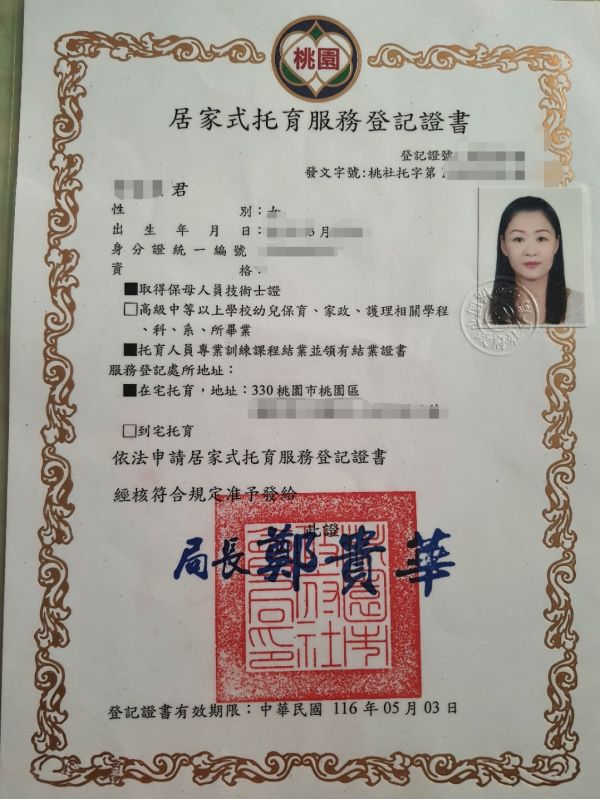 桃園
居家式托育服務登記證書
登記證號
發文字號:桃社托字第
君
性別:女
出生年月日: 月
身分證統一編號
資格:
■取得保母人員技術士證
□高級中等以上學校幼兒保育、家政、護理相關學程
、科、系、所畢業
■托育人員專業訓練課程結業並領有結業證書
服務登記處所地址:
■在宅托育,地址:330桃園市桃園區
□到宅托育
依法申請居家式托育服務登記證書
經核符合規定准予發給
此證
局長 鄭貴華
登記證書有效期限:中華民國 116 年 05 月 03 日